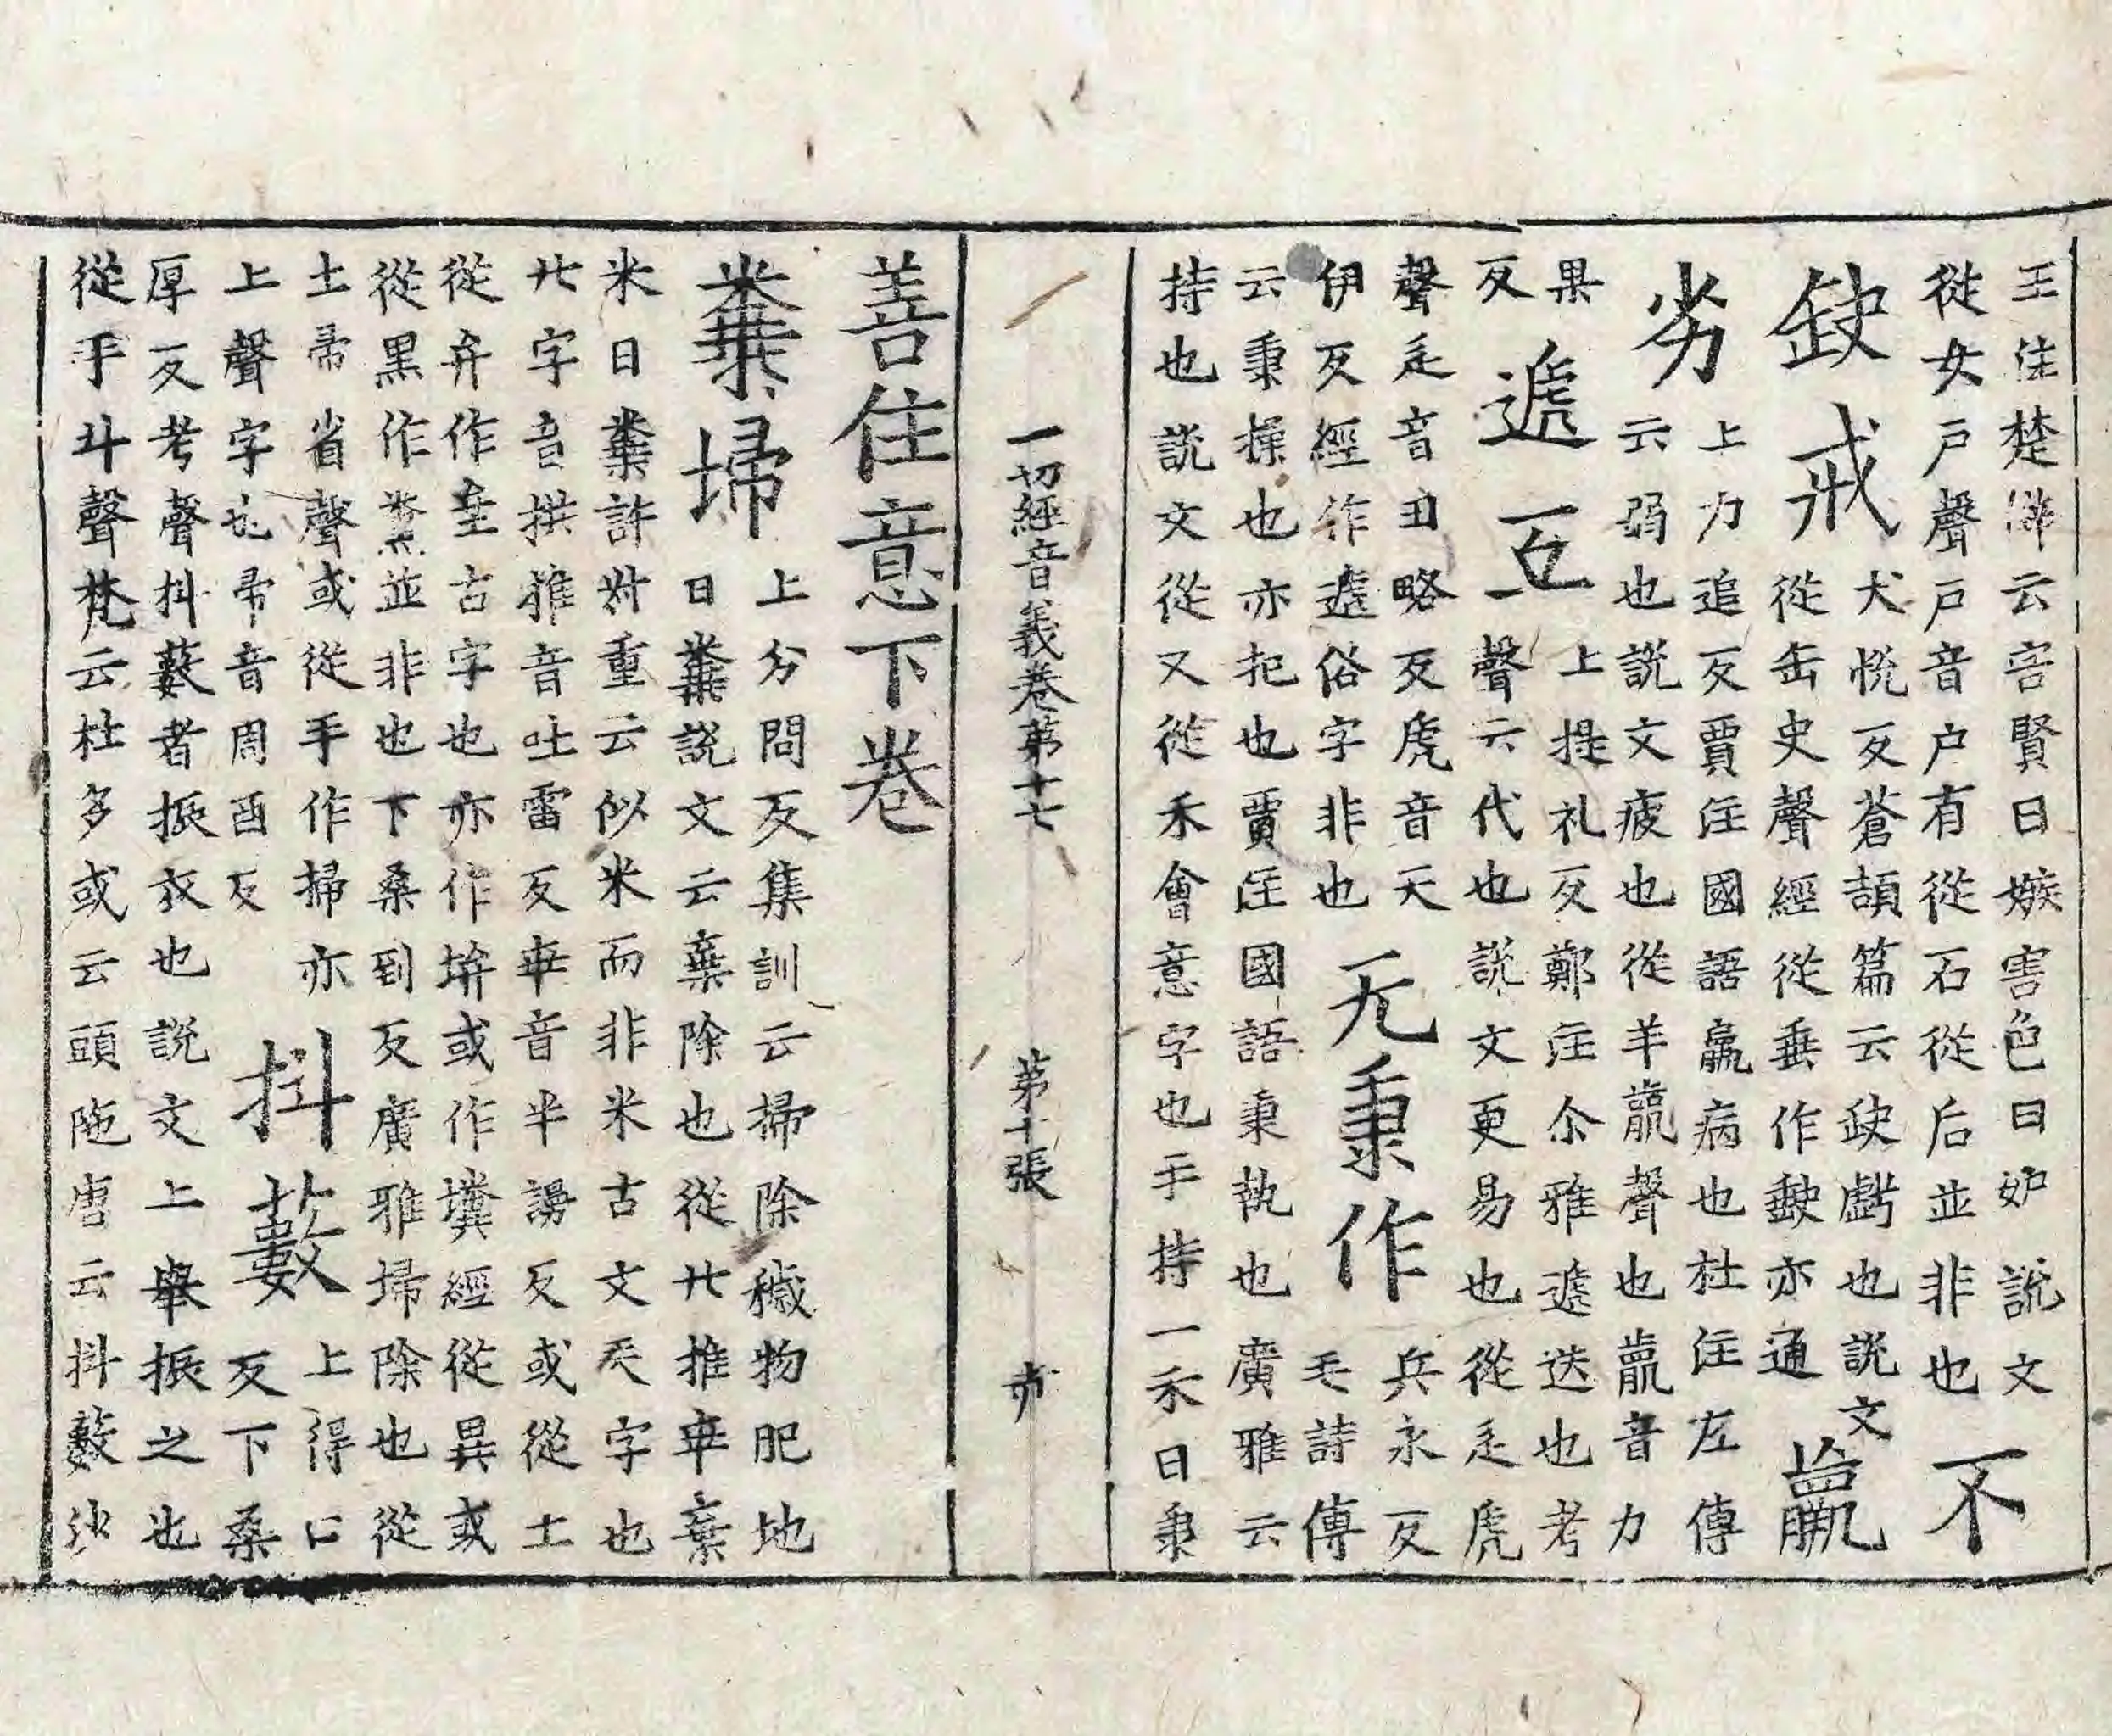 王注楚辭云害賢曰嫉害色曰妒說文
從女戶聲戶音户有從石從后並非也不
缺戒犬悅反蒼頡篇云缺虧也說文
從缶史聲經從垂作𡍮亦通羸
劣上力追反賈注國語羸病也杜注左傳
云弱也說文疲也從羊羸聲也羸音力
果反遞互上提礼反鄭注尒雅遞迭也考
聲云代也說文更易也從辵虒
聲辵音丑略反虒音天
伊反經作遞俗字非也无秉作兵永反
毛詩傳
云秉操也亦把也賈注國語秉執也廣雅云
持也說文從又從禾會意字也手持一禾曰秉
一切經音義卷第十七 第十張 亦
善住意下卷
糞掃上分問反集訓云掃除穢物肥地
曰糞說文云棄除也從廾推華棄
米曰糞許叔重云似米而非米古文矢字也
廾字音拱推音吐雷反華音半謾反或從土
從弁作𡊅古字也亦作㙥或作壤經從異或
從黑作𪐴並非也下桑到反廣雅掃除也從
土帚省聲或從手作掃亦
上聲字也帚音周酉反抖藪上得口
反下桑
厚反考聲抖藪者振衣也說文上舉振之也
從手斗聲梵云杜多或云頭陁唐云抖藪沙